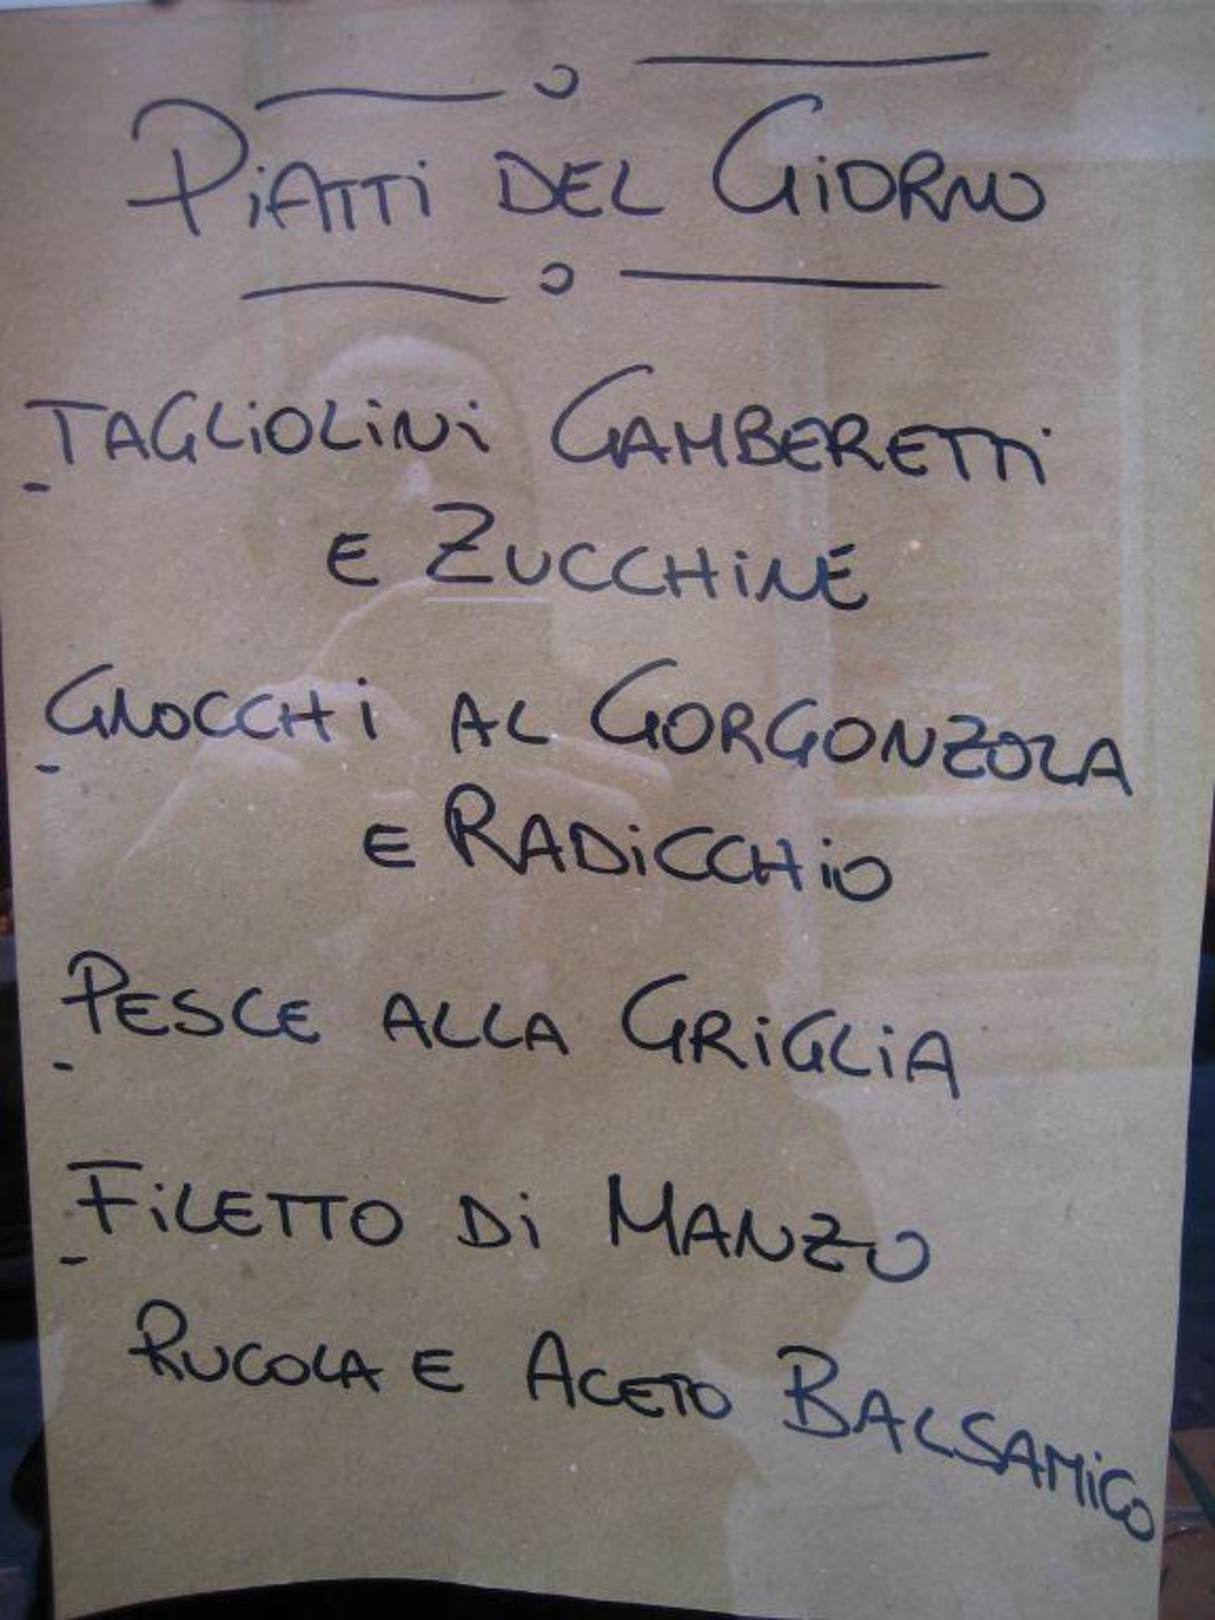 PiATTi DEL GiORNO
- TAGLiOLiNi GAMBERETTi
E ZUCCHiNE
- GNOCCHi AL GORGONZOLA
E RADiCCHiO
- PESCE ALLA GRiGLiA
- FiLETTO Di MANZO
RUCOLA E ACETO BALSAMiCO